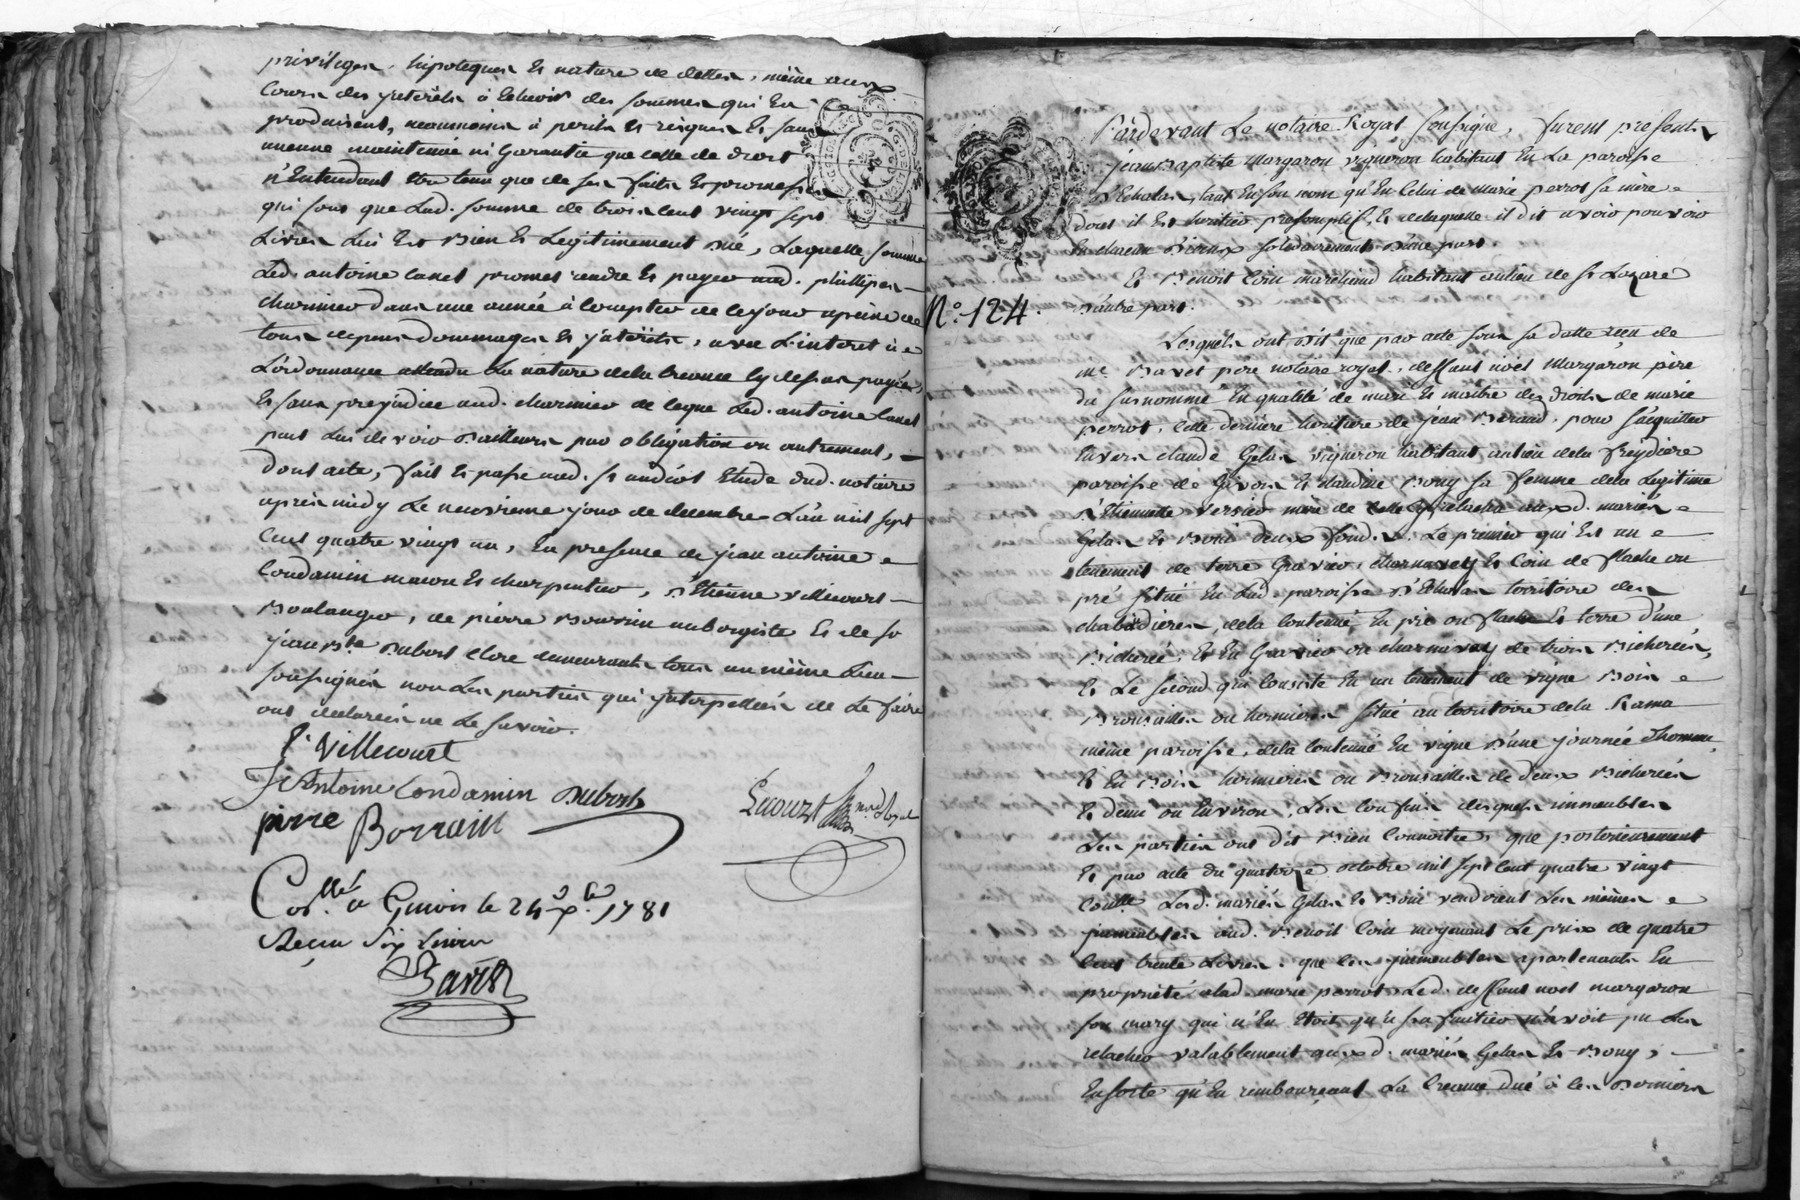 privilèges, hipoteques et nature de dettes, même aux
cours des jnterêts à Echeoir des sommes qui En
produisent, neanmoins à perils et risques Et sans
aucune maintenue ni Garantie que celle de droit
n'Entendant Etre tenu que de ses faits Et promesses
qui sont que Lad. somme de trois cent vingt sept
Livres Lui Est Bien Et Legitimement düé, Laquelle somme
Led. antoine Canet promet rendre Et payer aud. phillipes
charmier dans une année à Compter de ce jour apeine de
tous depens dommages Et jnterêts, avec L'interet à
L'ordonnance attendu La nature de la creance cy dessus payée,
Et sans prejudice aud. charmier de ce que Led. antoine Canet
peut Lui devoir D'ailleurs par obligation ou autrement,
dont acte, fait Et passé aud. St andéol Etude dud. notaire
après midy Le neuvieme jour de decembre L'an mil sept
Cent quatre vingt un, En presence de jean antoine
Condamin maçon Et charpentier, d'Etienne villecourt
Boulanger, de pierre Bourrin aubergiste Et de sr
jean Bte Dubost clerc demeurants tous au même Lieu
soussignés non Les parties qui jnterpellées de Le faire
ont declarées ne Le savoir.
E villecourt
J Antoine Condamin Dubost
pierre Borram
Collé a Givors le 24 xbre 1781
Reçu Six Livres
Bavet
Pardevant Le notaire Royal soussigné, furent presents
jean Baptiste Margaron vigneron habitant En La paroisse
D'Echalas, tant En son nom qu'En Celui de marie perrot sa mère
dont il Est heritier presomptif, Et de laquelle il dit avoir pouvoir
En chacun D'iceux solidairement D'une part.
Et Benoit Coin marchand habitant au lieu de St Lazare
D'autre part.
N°. 124.
Lesquels ont dit que par acte sous sa datte reçu de
me. Bavet père notaire royal, deffunt noël Margaron père
du surnommé En qualité de mari Et maître des Droits de marie
perrot, Cette derniere heritiere de jean Beraud, pour s'acquitter
Envers claude Gelas vigneron habitant au lieu de la freydiere
paroisse de Givors Et claudine Bony sa femme de la Legitime
d'Etiennette Versier mère de Cette cy relacha auxd. mariés
Gelas Et Boni deux fonds. Le premier qui Est un
tenement de terre Gravier, charnavay Et Coin de flache ou
pré situé En Lad. paroisse D'Echalas territoire des
chabaudieres, de la Contenüe En pré ou flache Et terre d'une
Bicherée, Et En Gravier ou charnavay de trois Bicherées,
Et Le second qui Consiste En un tenement de vigne Bois
Brousailles ou hermieres situé au territoire de la Rama
même paroisse, de la Contenüe En vigne D'une journée d'homme,
Et En Bois hermieres ou Brousailles de deux Bicherées
Et demi ou Environ, Les Confins desquels immeubles
Les parties ont dit Bien Connoitre, que posterieurement
Et par acte du quatorze octobre mil sept Cent quatre vingt
Lesd. mariés Gelas Et Boni vendirent Les mêmes
jmmeubles aud. Benoit Coin moyenant Le prix de quatre
Cent trente Livres. que Ces jmmeubles apartenants En
proprieté alad. marie perrot, Led. deffunt noël margaron
son mary qui n'En Etoit qu'usufruitier n'avoit pu Les
relacher valablement auxd. mariés Gelas Et Bony,
Ensorte qu'En rembourçant La Creance düé à Ces Derniers